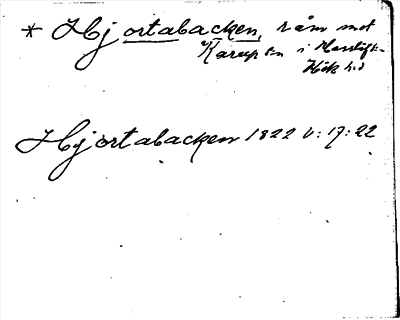 * Hjortabacken, råm mot
Karup sn i Hasslöf-
Hök hd
Hjortabacken 1822 V: 17: 22